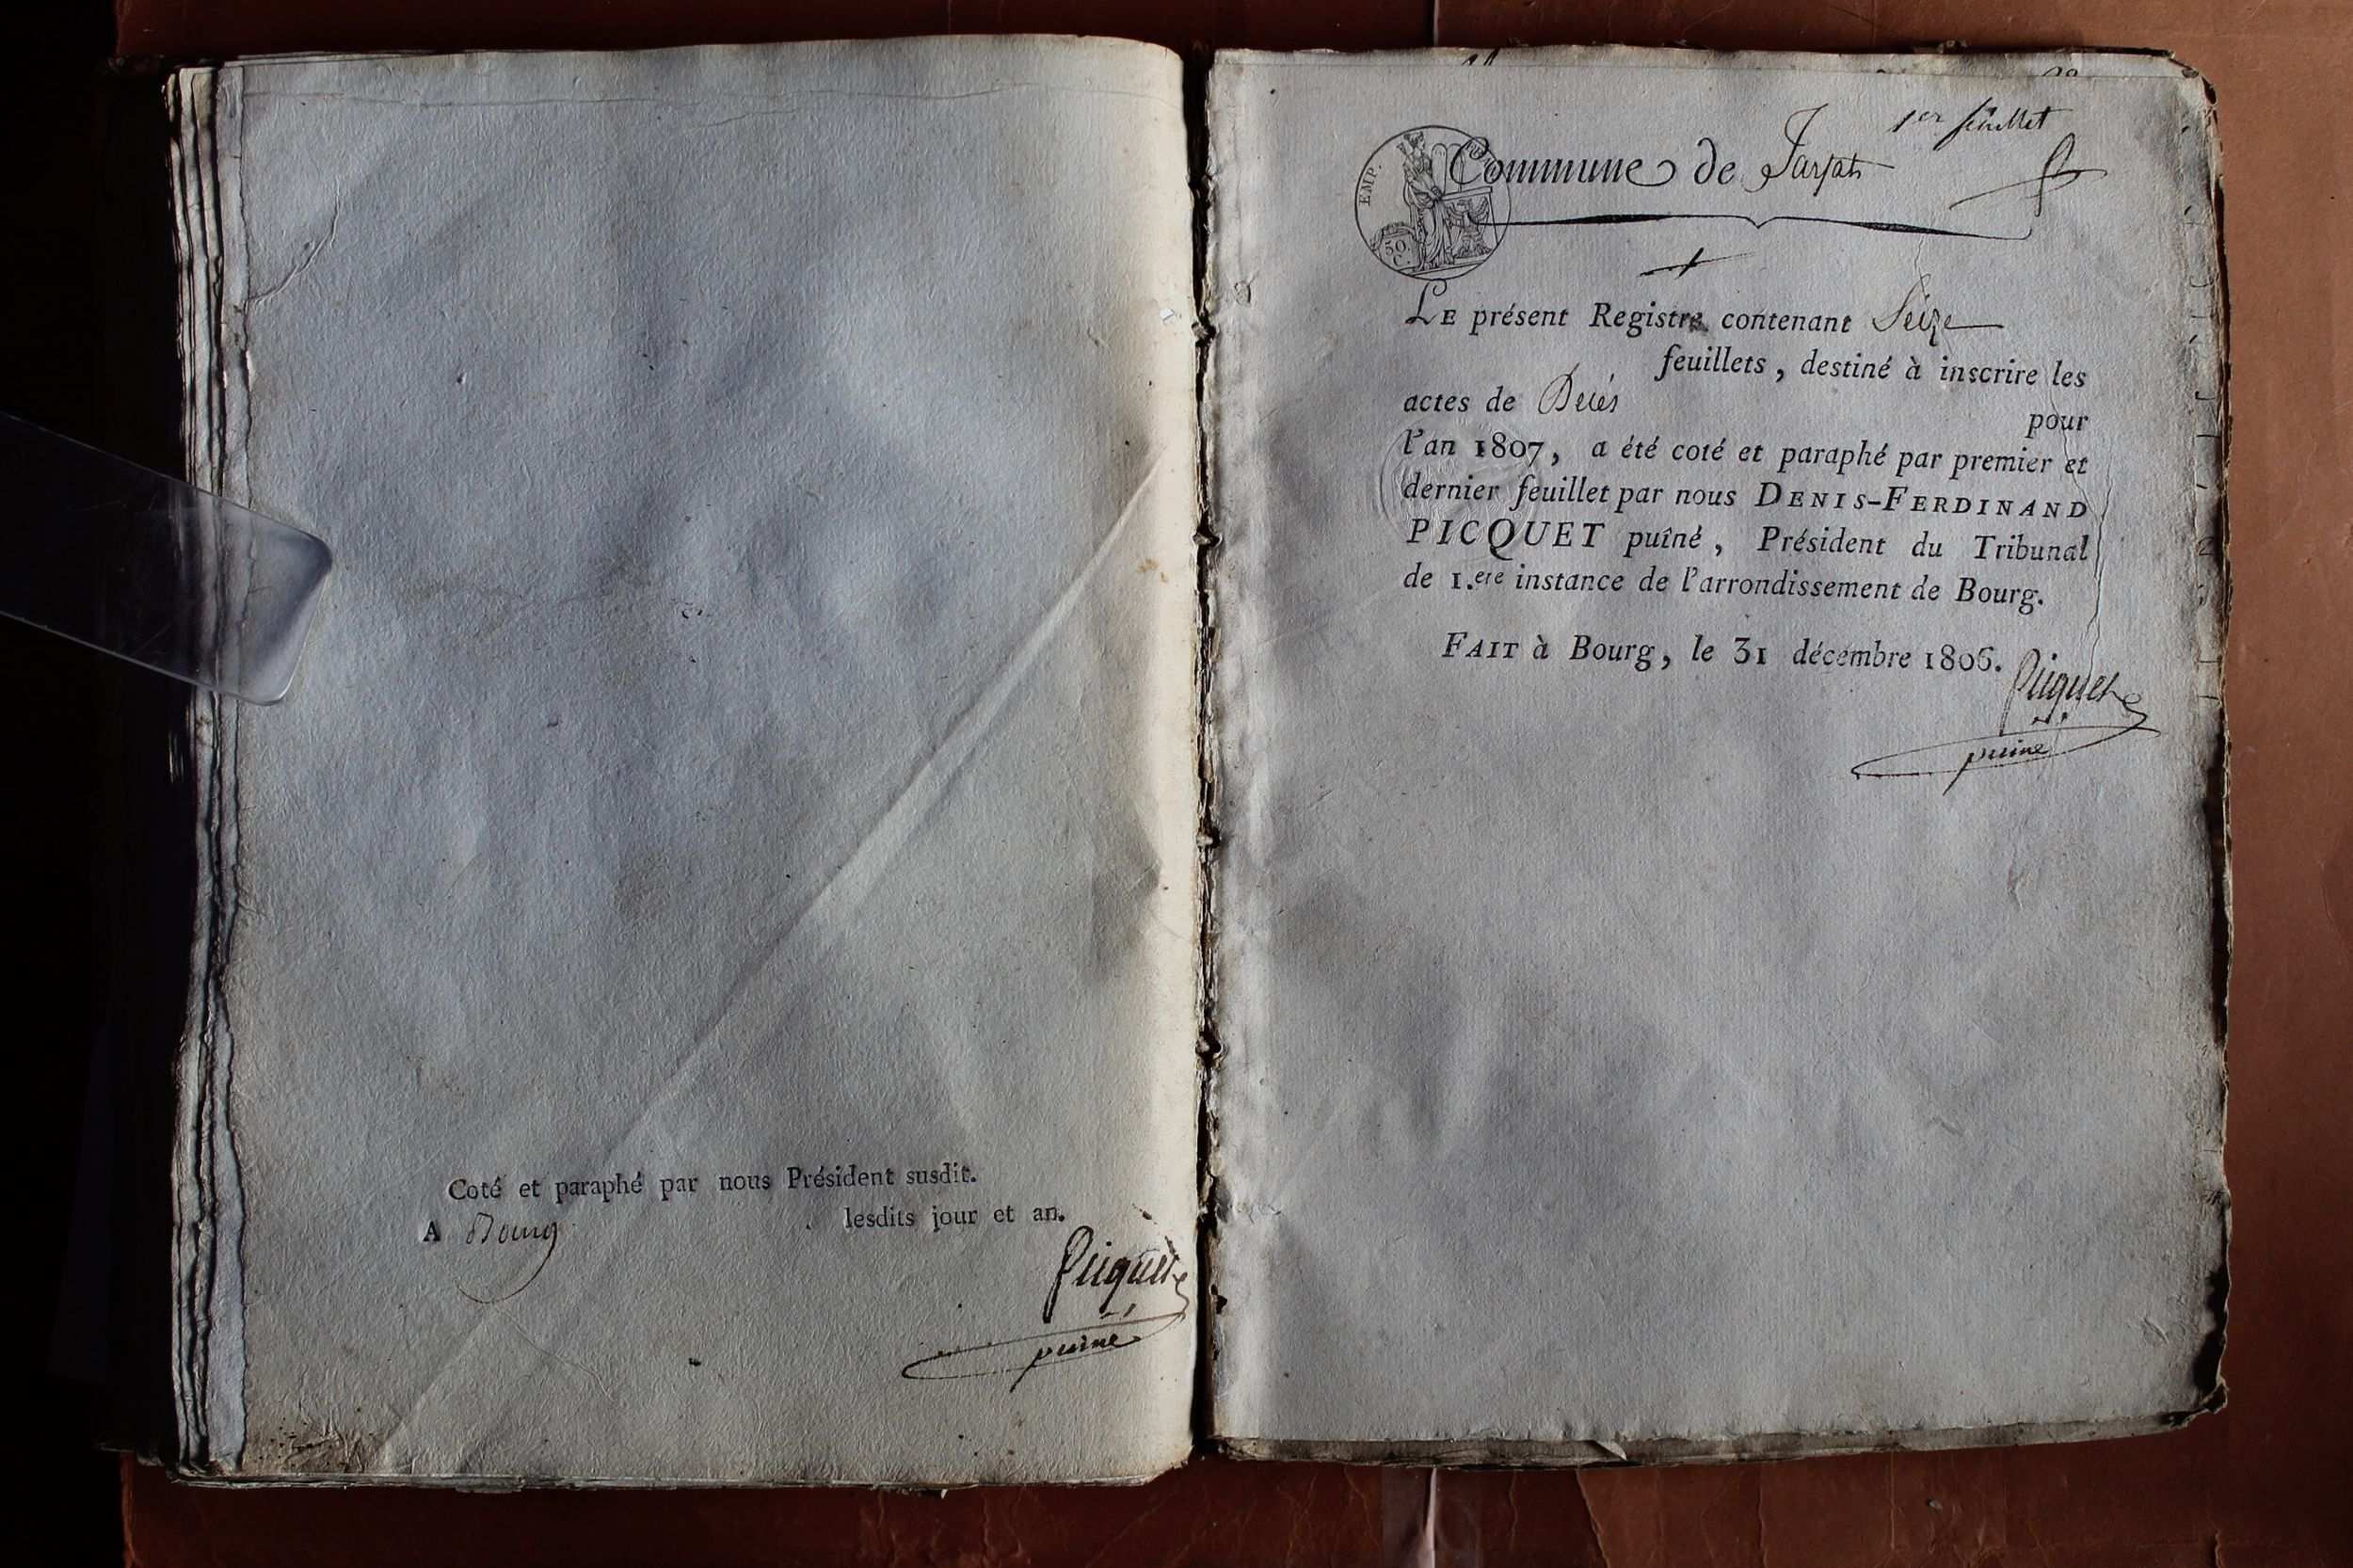 Coté et paraphé par nous Président susdit.
A Bourg lesdits jour et an.
Picquet
puiné
1er feuillet
EMP.
50.
C.
Commune de Jasseron
LE présent Registre contenant Seize
feuillets, destiné à inscrire les
actes de Décès
pour
l'an 1807, a été coté et paraphé par premier et
dernier feuillet par nous DENIS-FERDINAND
PICQUET puîné, Président du Tribunal
de 1.ere instance de l'arrondissement de Bourg.
FAIT à Bourg, le 31 décembre 1806.
Picquet
puiné